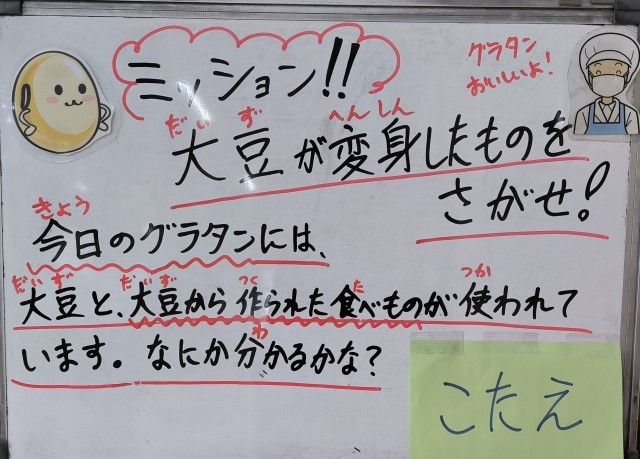 ミッション!!
グラタン
おいしいよ!
だいず へんしん
大豆が変身したものを
さがせ!
きょう
今日のグラタンには、
だいず だいず つく た つか
大豆と、大豆から作られた食べものが使われて
わ
います。なにか分かるかな?
こたえ